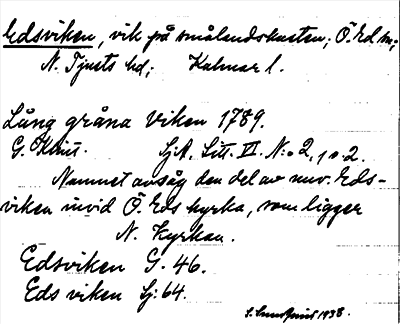 Edsviken, vik på smålandskusten; Ö. Ed sn;
N. Tjusts hd; Kalmar l.
Lång gråna Viken 1789.
G. Klint. Sj.A. Litt. VI. N:o 2, 1 o. 2.
Namnet avsåg den del av nuv. Eds-
viken invid Ö. Eds kyrka, som ligger
N. Kyrkan.
Edsviken G. 46.
Eds viken Sj: 64.
1938.